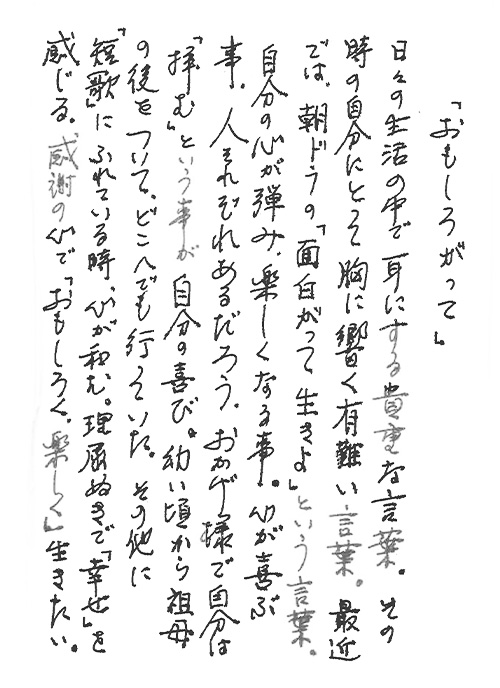 「おもしろがって」
日々の生活の中で耳にする貴重な言葉。その
時の自分にとって胸に響く有難い言葉。最近
では、朝ドラの「面白がって生きよ」という言葉。
自分の心が弾み、楽しくなる事。心が喜ぶ
事、人それぞれあるだろう。おかげ様で自分は
「拝む」という事が自分の喜び。幼い頃から祖母
の後をついて、どこへでも行っていた。その他に
「短歌」にふれている時、心が和む。理屈ぬきで「幸せ」を
感じる。感謝の心で「おもしろく、楽しく」生きたい。